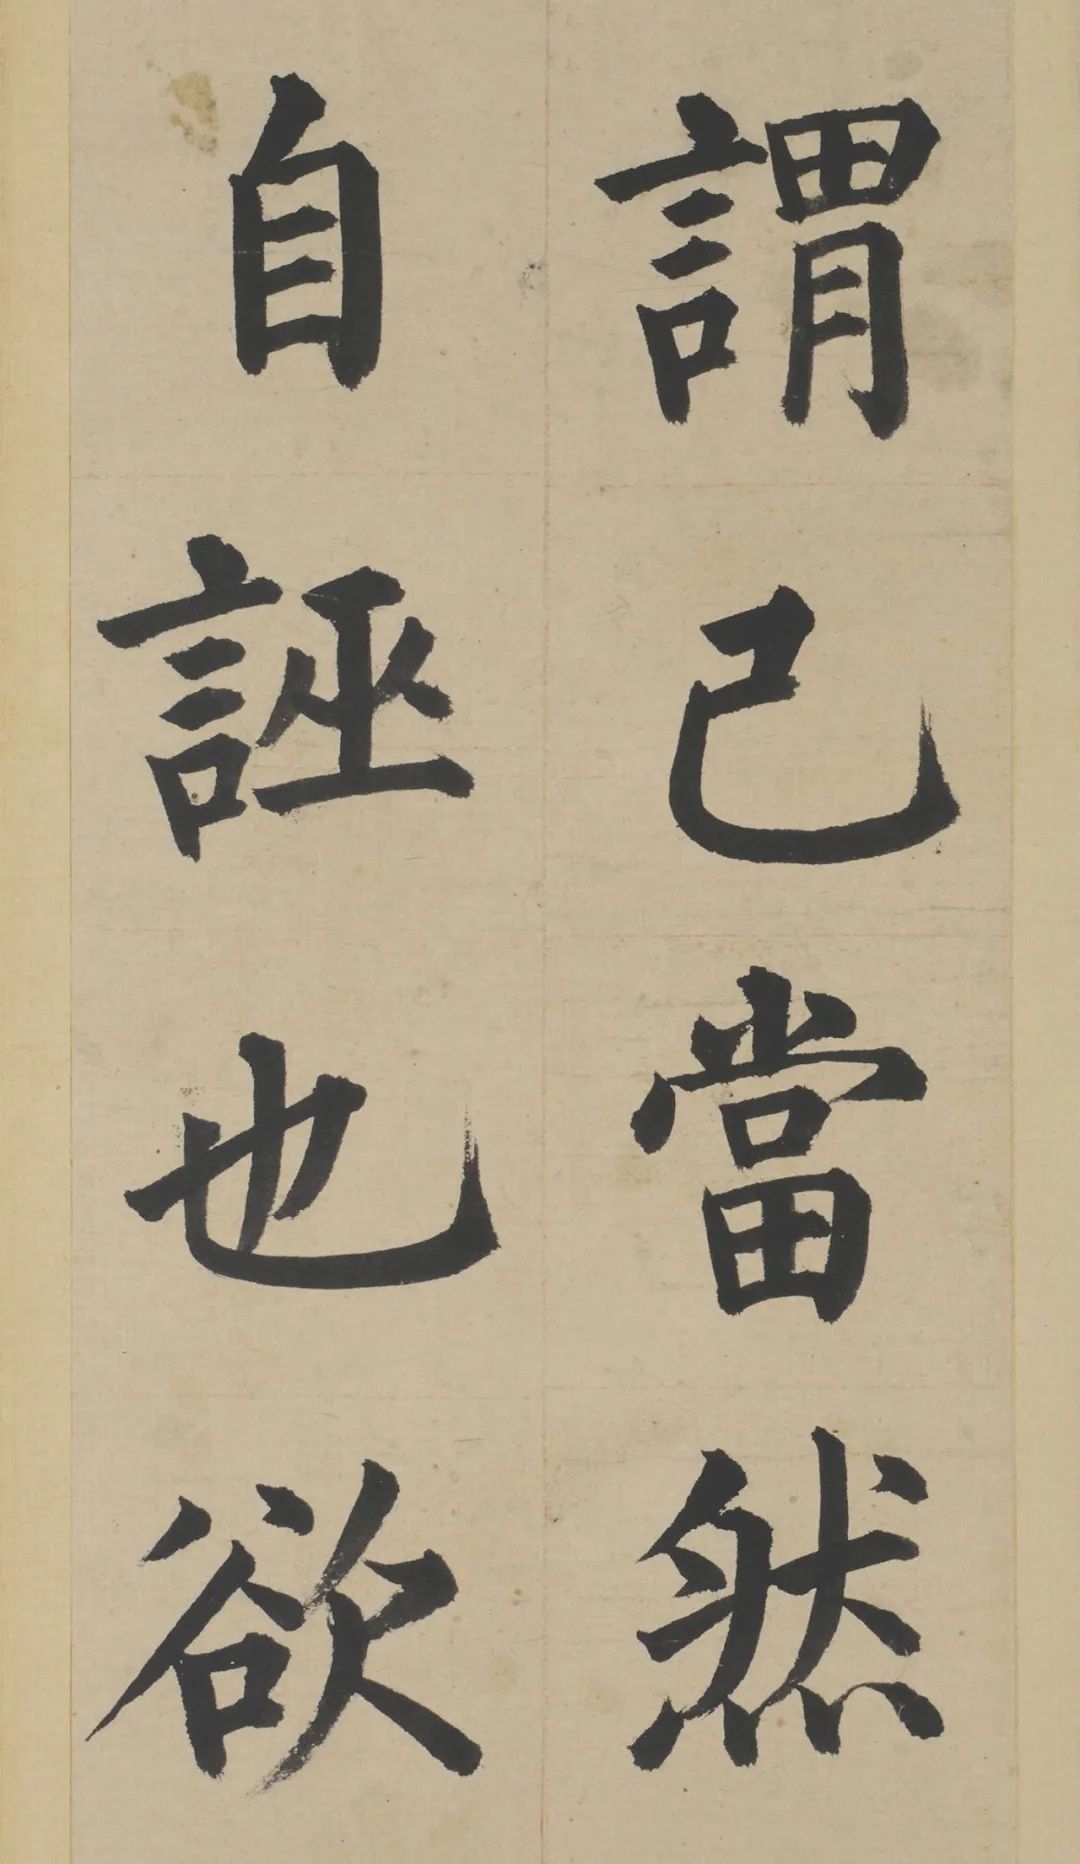 謂己當然
自誣也欲